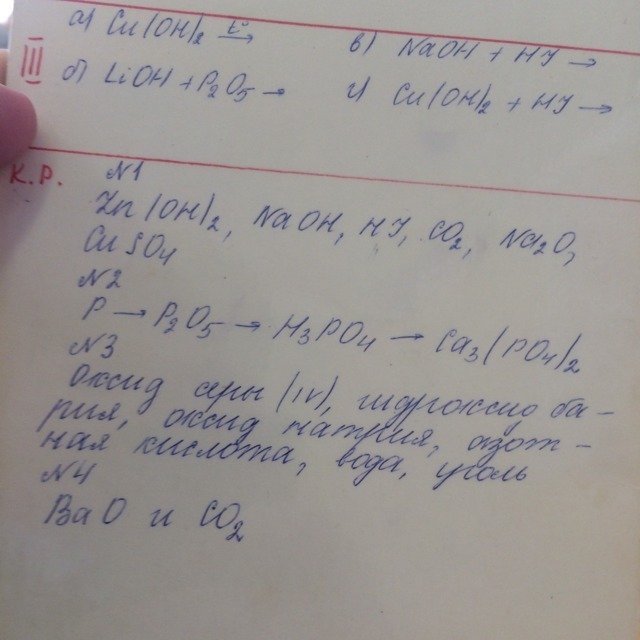 а) Cu(OH)2 t° →
в) NaOH + HJ →
III
б) LiOH + P2O5 →
г) Cu(OH)2 + HJ →
К.Р.
N1
Zn(OH)2, NaOH, HJ, CO2, Na2O,
CuSO4
N2
P → P2O5 → H3PO4 → Ca3(PO4)2
N3
Оксид серы (IV), гидроксид ба-
рия, оксид натрия, азот-
ная кислота, вода, уголь
N4
BaO и CO2